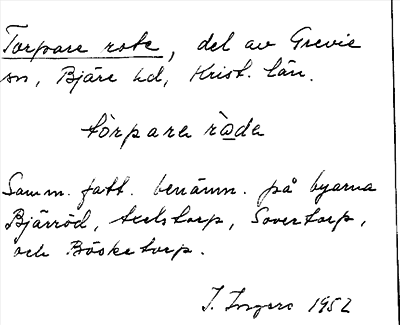 Torpare rote, del av Grevie
sn, Bjäre hd, Krist. län.
tòrpara ròda
Samm. fatt. benämn. på byarna
Bjärröd, Axelstorp, Sovertorp,
och Böske torp.
J. Ingers 1952